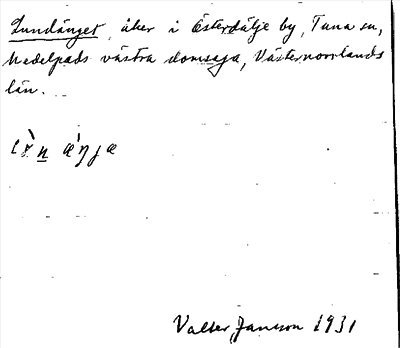 Lundänget, åker i Österdälje by, Tuna sn,
Medelpads västra domsaga, Västernorrlands
län.
Valter Jansson 1931